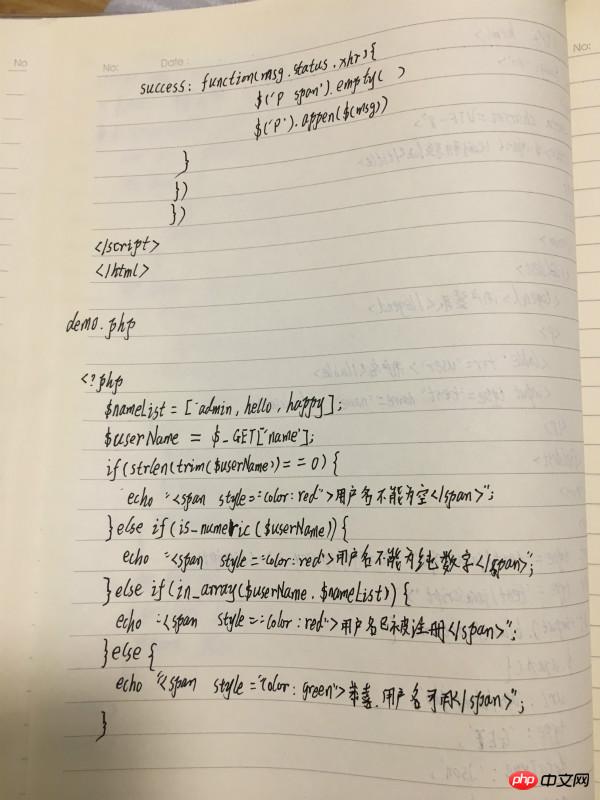 No:
No:
Date:
No:
success: function(msg.status.xhr){
$('P span').empty( )
$('P').appen($(msg))
}
})
})
</script>
</html>
demo.php
<?php
$nameList = ['admin, hello, happy];
$userName = $_GET['name'];
if(strlen(trim($userName))==0){
echo "<span style="color:red">用户名不能为空</span>";
}else if(is_numeric($userName)){
echo "<span style="color:red">用户名不能为纯数字</span>";
}else if(in_array($userName.$nameList)){
echo "<span style="color:red">用户名已被注册</span>";
}else{
echo "<span style="color:green">恭喜.用户名可用</span>";
}
php中文网